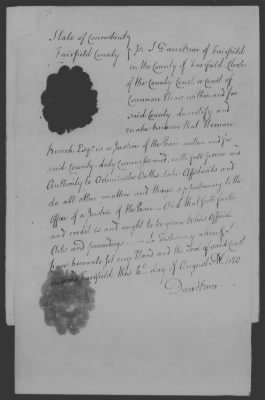 State of Connecticut
Fairfield County } Ss. I David Burr of Fairfield
in the County of Fairfield, Clerk
of the County Court or Court of
Common Pleas within and for
said County do certify and
make known that
Esqr. is a Justice of the Peace within and for
said County duly Commissioned, with full power &
Authority to Administer Oaths, take Affidavits and
do all other matters and things appertaining to the
office of a Justice of the Peace – And that full faith
and credit is and ought to be given to his Official
Acts and proceedings — In Testimony whereof I
have hereunto set my Hand and the Seal of said Court
at Fairfield this 6th day of August
David Burr